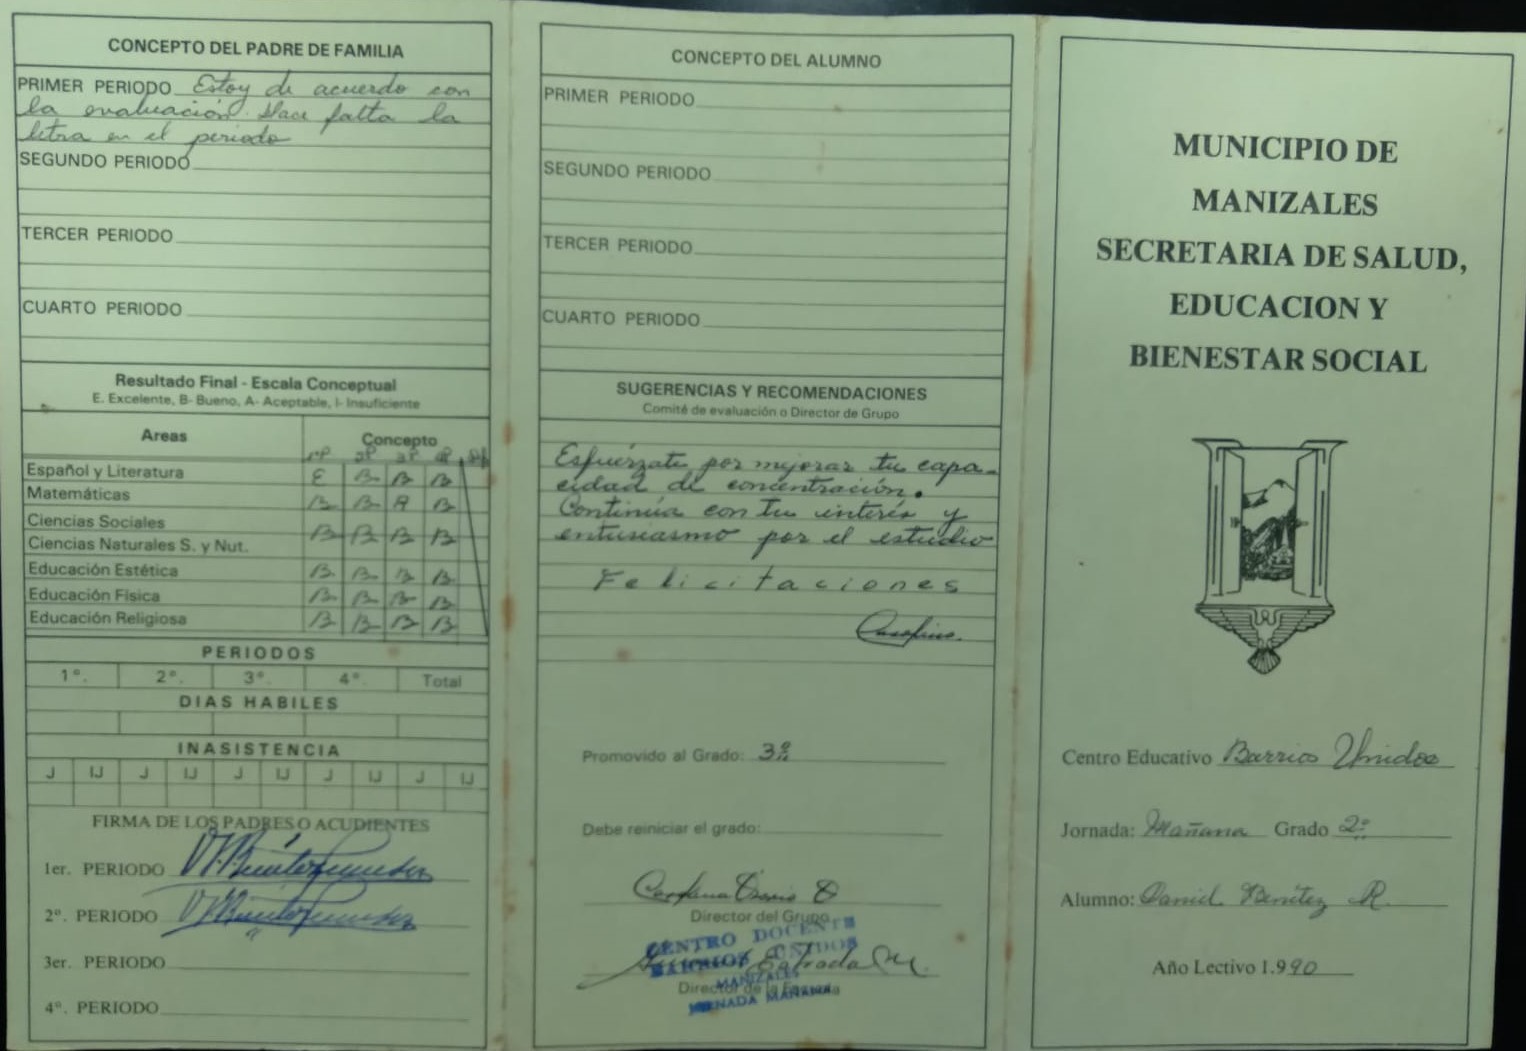 CONCEPTO DEL PADRE DE FAMILIA
PRIMER PERIODO Estoy de acuerdo con
la evaluación. Hace falta la
letra en el periodo
SEGUNDO PERIODO
TERCER PERIODO
CUARTO PERIODO
Resultado Final - Escala Conceptual
E. Excelente, B- Bueno, A- Aceptable, I- Insuficiente
Areas Concepto
1P 2P 3P 4P
Español y Literatura E B B B
Matemáticas B B A B
Ciencias Sociales
Ciencias Naturales S. y Nut. B B B B
Educación Estética B B B B
Educación Física B B B B
Educación Religiosa B B B B
PERIODOS
1°. 2°. 3°. 4°. Total
DIAS HABILES
INASISTENCIA
J IJ J IJ J IJ J IJ J IJ
FIRMA DE LOS PADRES O ACUDIENTES
1er. PERIODO
2°. PERIODO
3er. PERIODO
4°. PERIODO
CONCEPTO DEL ALUMNO
PRIMER PERIODO
SEGUNDO PERIODO
TERCER PERIODO
CUARTO PERIODO
SUGERENCIAS Y RECOMENDACIONES
Comité de evaluación o Director de Grupo
Esfuérzate por mejorar tu capa-
cidad de concentración.
Continúa con tu interés y
entusiasmo por el estudio
Felicitaciones
Promovido al Grado: 3º
Debe reiniciar el grado:
Director del Grupo
CENTRO DOCENTE
BARRIOS UNIDOS
Estrada M.
MANIZALES
Director de la Escuela
JORNADA MAÑANA
MUNICIPIO DE
MANIZALES
SECRETARIA DE SALUD,
EDUCACION Y
BIENESTAR SOCIAL
Centro Educativo Barrios Unidos
Jornada: Mañana Grado 2º
Alumno: Daniel Benítez R.
Año Lectivo 1.990